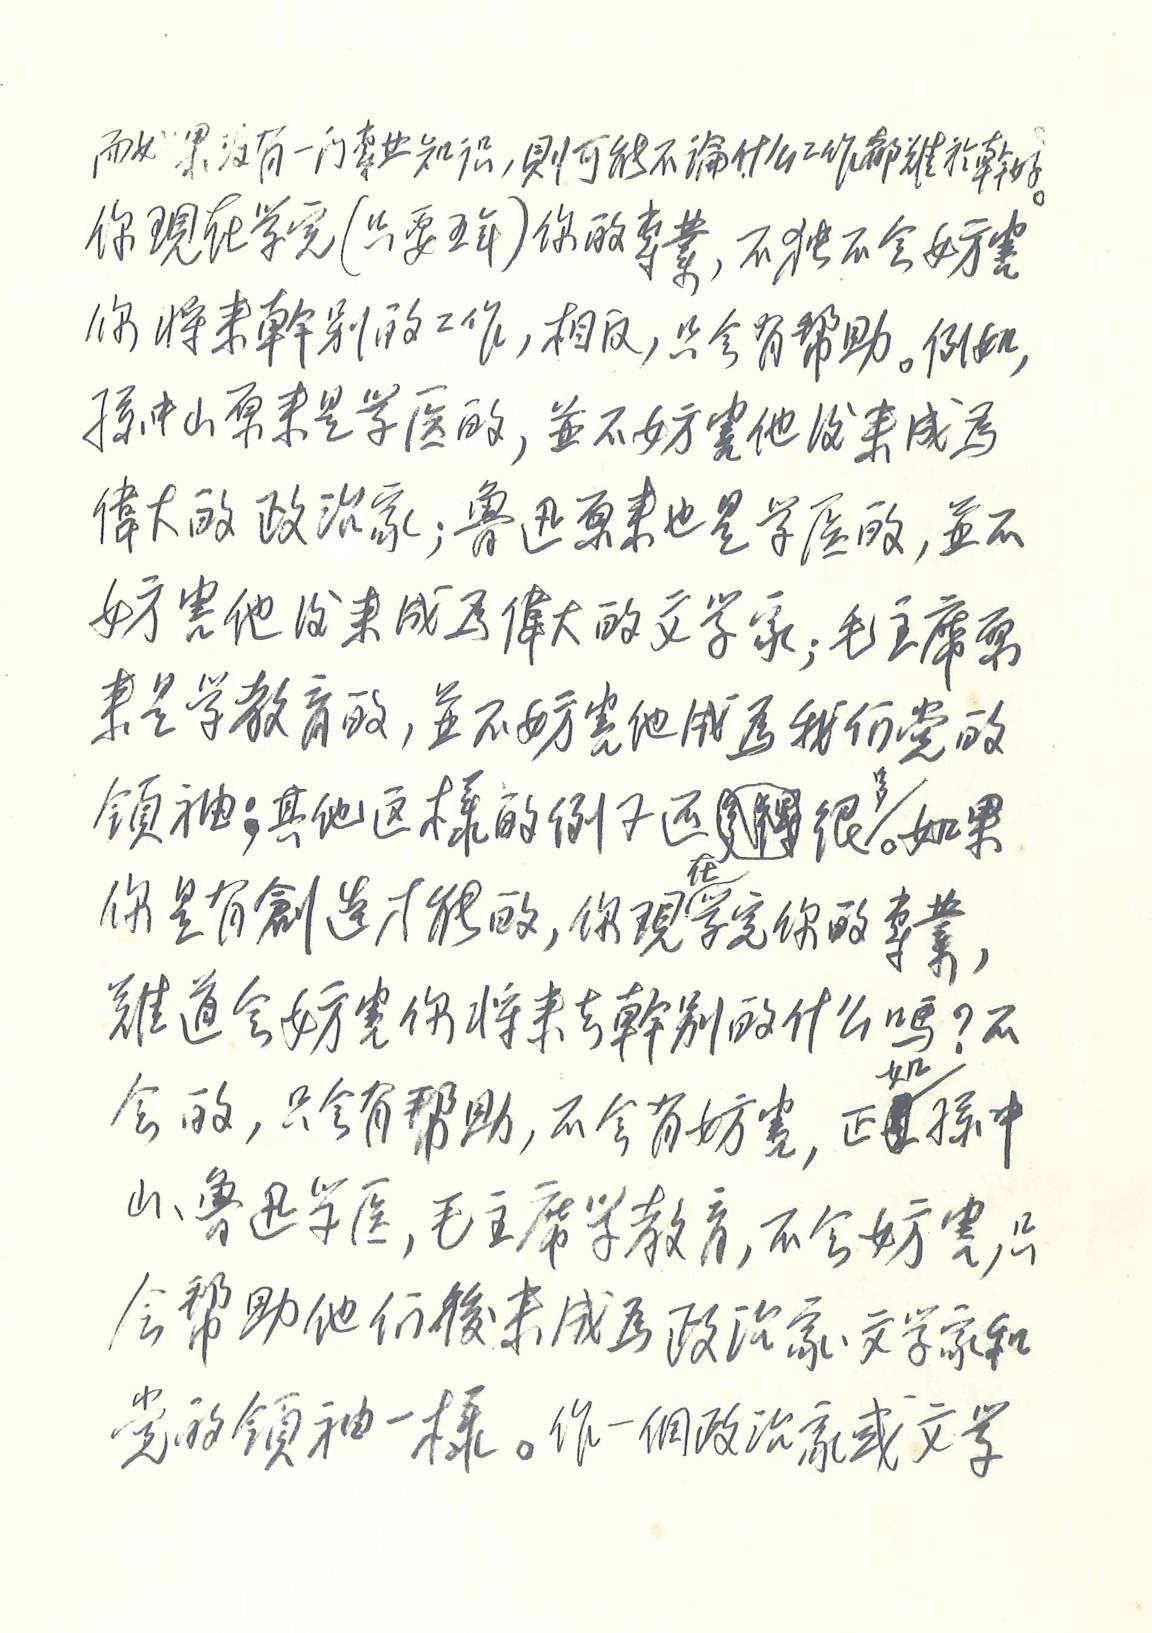 而如果没有一门專业知识，則可能不論什么工作都难於幹好。
你現在学完(只要五年)你的專業，不独不会妨害
你将来幹别的工作，相反，只会有帮助。例如，
孫中山原来是学医的，並不妨害他後来成為
偉大的政治家；魯迅原来也是学医的，並不
妨害他後来成為偉大的文学家；毛主席原
来是学教育的，並不妨害他成為我们党的
領袖；其他这样的例子还很多。如果
你是有創造才能的，你現在学完你的專業，
难道会妨害你将来去幹别的什么嗎？不
会的，只会有帮助，不会有妨害，正如孫中
山、魯迅学医，毛主席学教育，不会妨害，只
会帮助他们後来成為政治家、文学家和
党的領袖一様。作一個政治家或文学